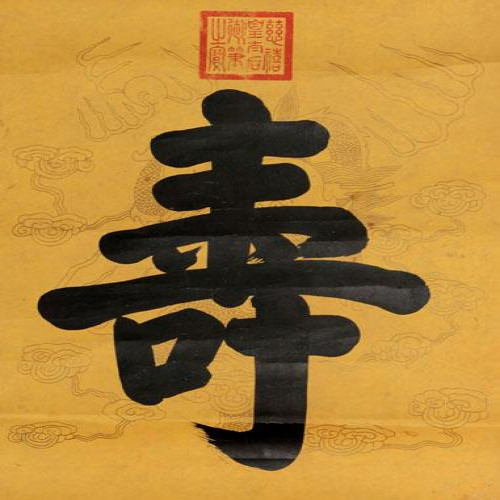 慈禧皇太后御筆之寶
壽